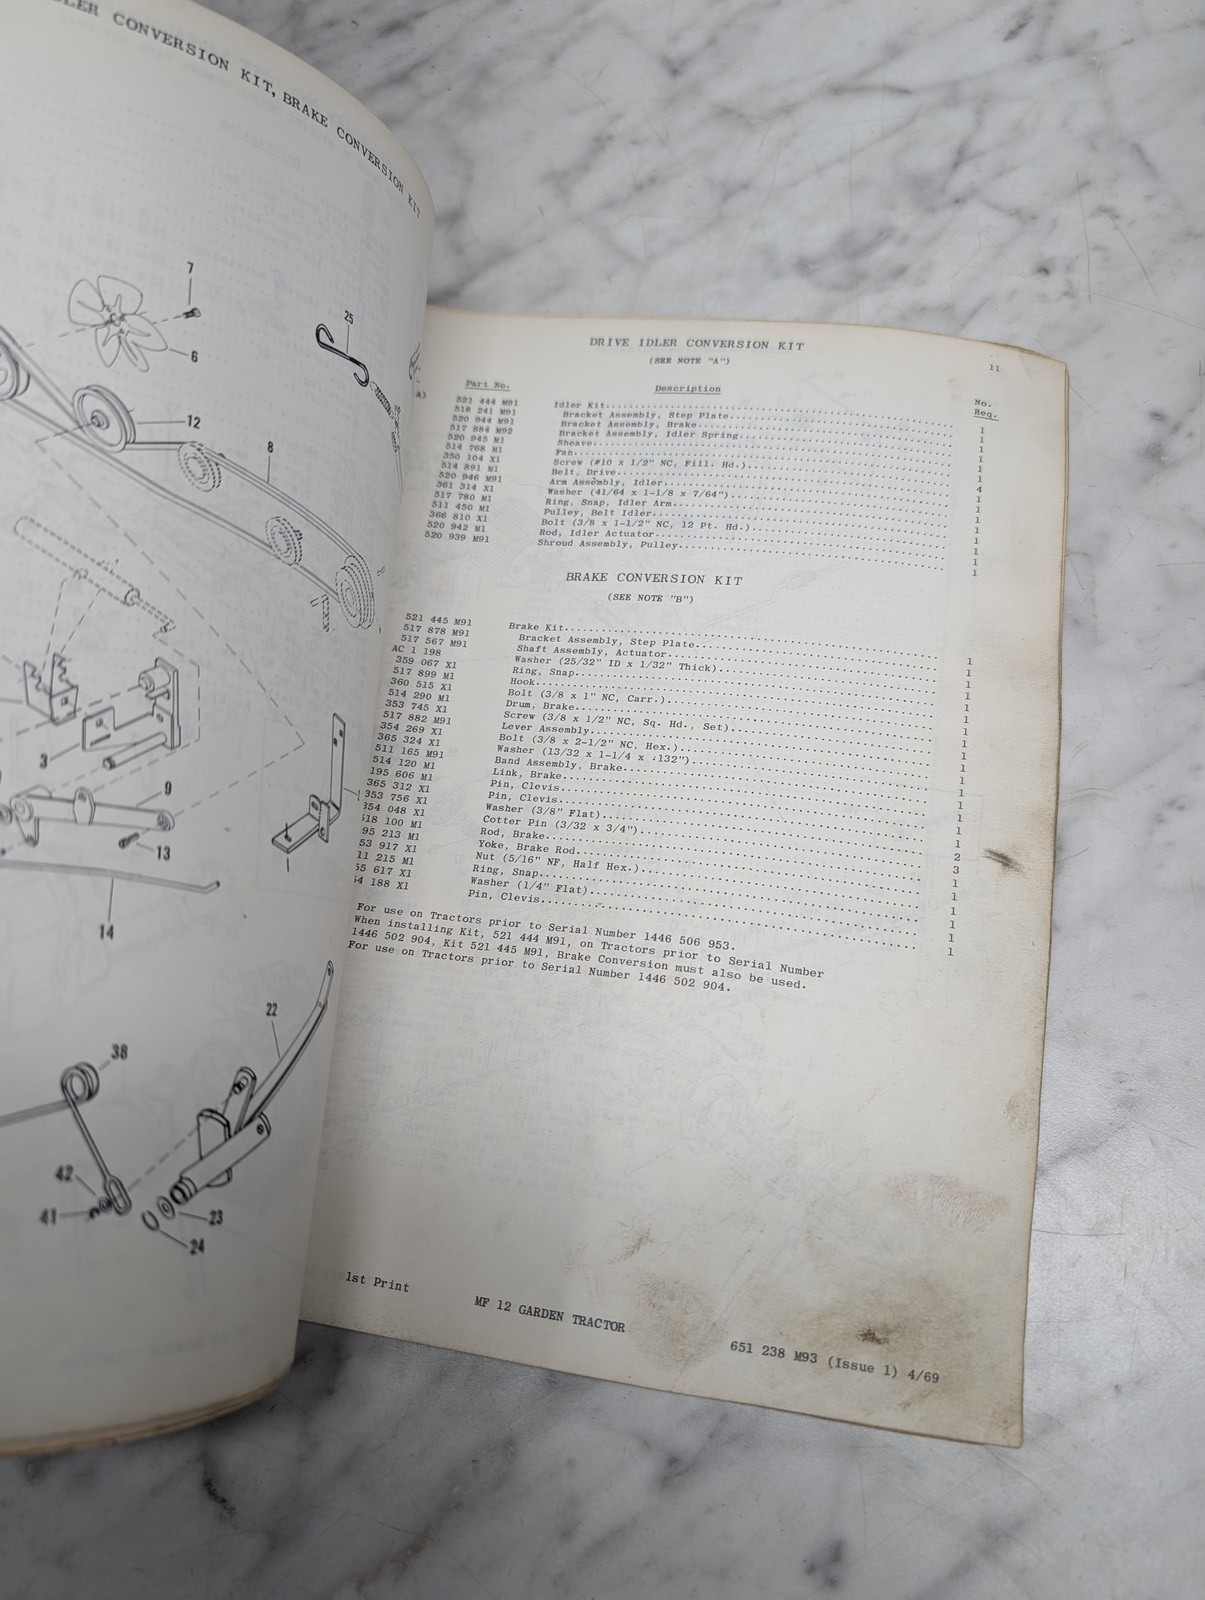 DLER CONVERSION KIT, BRAKE CONVERSION KIT
7
25
6
12
8
3
9
13
14
22
38
42
41
23
24
11
DRIVE IDLER CONVERSION KIT
(SEE NOTE "A")
Part No. Description No. Req.
A)
521 444 M91 Idler Kit 1
518 241 M91 Bracket Assembly, Step Plate 1
520 944 M91 Bracket Assembly, Brake 1
517 884 M92 Bracket Assembly, Idler Spring 1
520 945 M1 Sheave 1
514 768 M1 Fan 1
350 104 X1 Screw (#10 x 1/2" NC, Fill. Hd.) 4
514 891 M1 Belt, Drive 1
520 946 M91 Arm Assembly, Idler 1
361 314 X1 Washer (41/64 x 1-1/8 x 7/64") 1
517 780 M1 Ring, Snap, Idler Arm 1
511 450 M1 Pulley, Belt Idler 1
366 810 X1 Bolt (3/8 x 1-1/2" NC, 12 Pt. Hd.) 1
520 942 M1 Rod, Idler Actuator 1
520 939 M91 Shroud Assembly, Pulley 1
BRAKE CONVERSION KIT
(SEE NOTE "B")
521 445 M91 Brake Kit 1
517 878 M91 Bracket Assembly, Step Plate 1
517 567 M91 Shaft Assembly, Actuator 1
AC 1 198 Washer (25/32" ID x 1/32" Thick) 1
359 067 X1 Ring, Snap 1
517 899 M1 Hook 1
360 515 X1 Bolt (3/8 x 1" NC, Carr.) 1
514 290 M1 Drum, Brake 1
353 745 X1 Screw (3/8 x 1/2" NC, Sq. Hd., Set) 1
517 882 M91 Lever Assembly 1
354 269 X1 Bolt (3/8 x 2-1/2" NC, Hex.) 1
365 324 X1 Washer (13/32 x 1-1/4 x .132") 1
511 165 M91 Band Assembly, Brake 1
514 120 M1 Link, Brake 1
195 606 M1 Pin, Clevis 1
365 312 X1 Pin, Clevis 1
353 756 X1 Washer (3/8" Flat) 2
354 048 X1 Cotter Pin (3/32 x 3/4") 3
518 100 M1 Rod, Brake 1
95 213 M1 Yoke, Brake Rod 1
53 917 X1 Nut (5/16" NF, Half Hex.) 1
11 215 M1 Ring, Snap 1
55 617 X1 Washer (1/4" Flat) 1
54 188 X1 Pin, Clevis 1
For use on Tractors prior to Serial Number 1446 506 953.
When installing Kit, 521 444 M91, on Tractors prior to Serial Number
1446 502 904, Kit 521 445 M91, Brake Conversion must also be used.
For use on Tractors prior to Serial Number 1446 502 904.
1st Print
MF 12 GARDEN TRACTOR
651 238 M93 (Issue 1) 4/69